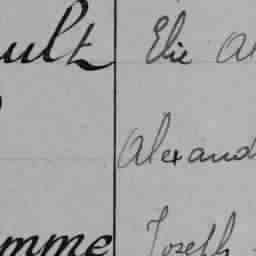 ult Elie
Alexand
mme Joseph